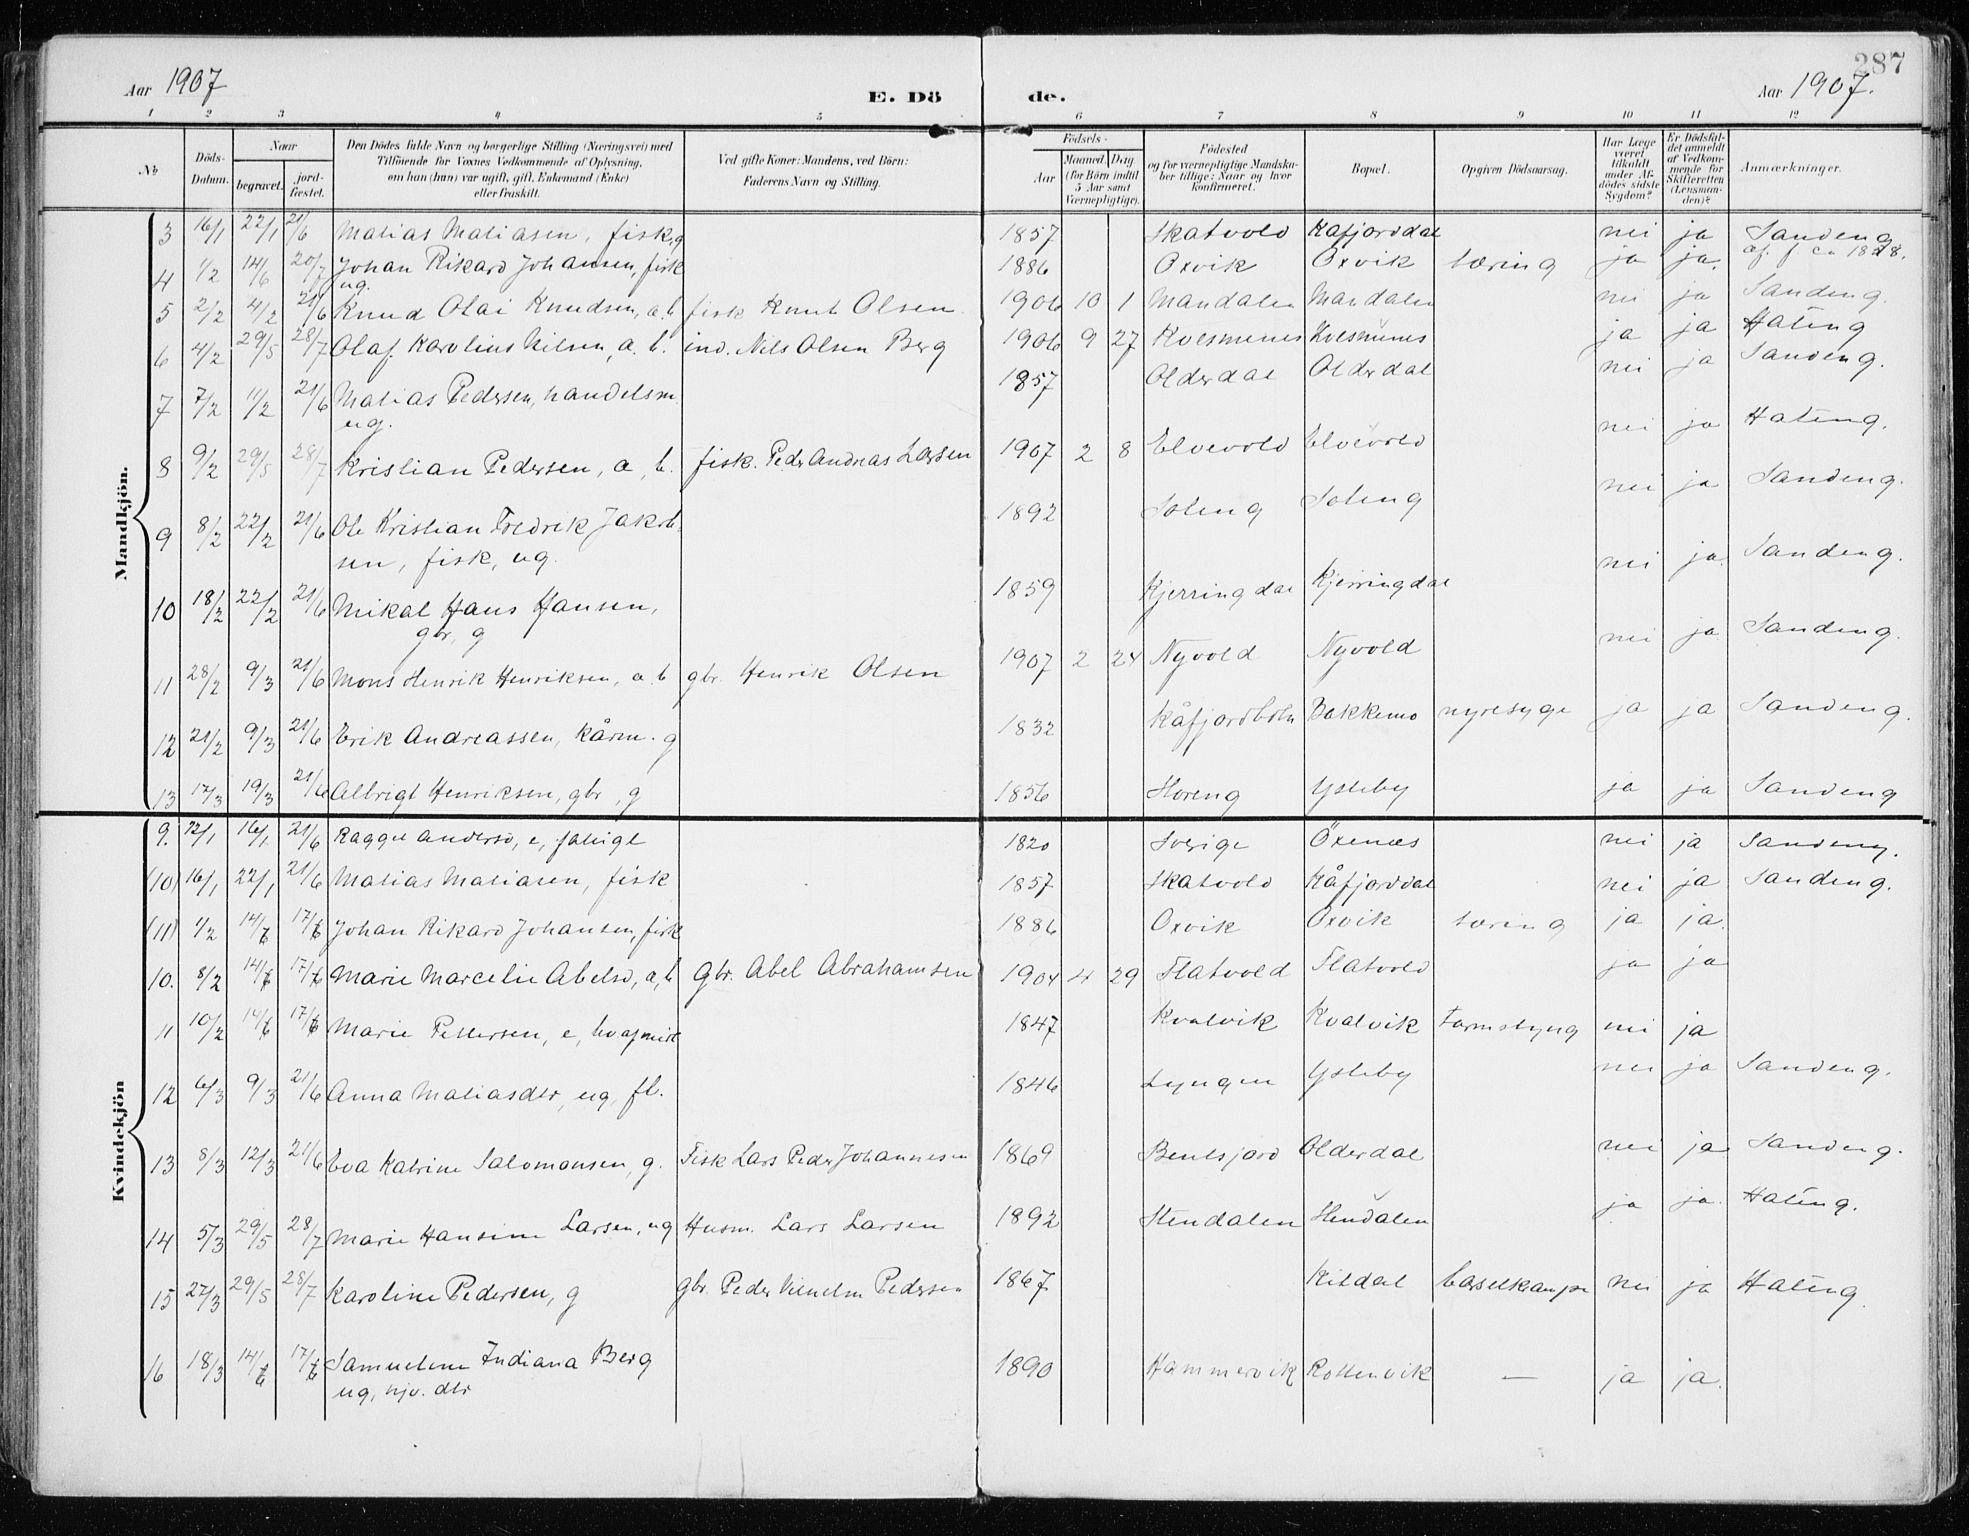 287
Aar 1907
E. Dö de.
Aar 1907.
1 2 3 4 5 6 7 8 9 10 11 12
No
Döds-
Datum.
Naar
begravet.
jord-
fæstet.
Den Dödes fulde Navn og borgerlige Stilling (Næringsvei) med
Tilföiende for Voxnes Vedkommende af Oplysning,
om han (hun) var ugift, gift, Enkemand (Enke)
eller fraskilt.
Ved gifte Koner: Mandens, ved Börn:
Faderens Navn og Stilling.
Födsels-
Aar
Maaned. Dag.
(for Börn indtil
5 Aar samt
Værnepligtige).
Födested
og for værnepligtige Mandska-
ber tillige: Naar og hvor
konfirmeret.
Bopæl.
Opgiven Dödsaarsag.
Har Læge
været
tilkaldt
under Af-
dödes sidste
Sygdom?
Er Dödsfal-
det anmeldt
af Vedkom-
mende for
Skifteretten
(Lensman-
den)?
Anmærkninger.
Mandkjön.
3 16/1 22/1 21/6 Matias Matiasen, fisk, g 1857 Skatvold Kafjorddal nei ja Sandeng
4 1/2 14/6 20/7 Johan Rikard Johansen, fisk 1886 Oxvik Oxvik tæring ja ja.
ug.
5 2/2 4/2 21/6 Knud Olai Knudsen, a. b. fisk Knut Olsen 1906 10 1 Mandalen Mandalen nei ja Sandeng.
6 4/2 29/5 28/7 Olaf Karolius Nilsen, a. b. ind. Nils Olsen Berg 1906 9 27 Kvesmenes Kvesmenes ja ja Hateng
7 7/2 11/2 21/6 Matias Pedersen, handelsm. 1857 Olderdal Olderdal nei ja Sandeng.
ug.
8 9/2 29/5 28/7 Kristian Pedersen, a, b. fisk. Peder Andreas Larsen 1907 2 8 Elvevold Elvevold nei ja Hateng.
9 8/2 22/2 21/6 Ole Kristian Fredrik Jakob- 1892 Soleng Soleng nei ja Sandeng.
sen, fisk, ug.
10 18/2 22/2 21/6 Mikal Hans Hansen, 1859 Kjerringdal Kjerringdal nei ja. Sandeng.
gbr, g
11 28/2 9/3 21/6 Mons Henrik Henriksen, a. b gbr. Henrik Olsen 1907 2 24 Nyvold Nyvold nei ja Sandeng.
12 21/2 9/3 21/6 Erik Andreassen, kårm. g 1832 Kåfjordbotn Bakkemo nyresyge ja ja Sandeng.
13 17/3 19/3 21/6 Albrigt Henriksen, gbr, g 1856 Horeng Ysteby ja ja Sandeng
Kvindekjön
9. 12/1 16/1 21/6 Ragge Andersd, e, 1820 Sverige Öxenæs nei ja Sandeng.
(10) 16/1 22/1 21/6 Matias Matiasen, fisk 1857 Skatvold Kåfjorddal nei ja Sandeng.
(11) 1/2 14/6 17/6 Johan Rikard Johansen, fisk 1886 Oxvik Oxvik tæring ja ja.
10. 8/2 14/6 17/6 Marie Marcelie Abelsd, a, b gbr. Abel Abrahamsen 1904 4 29 Flatvold Flatvold ja ja
11 10/2 14/6 17/6 Marie Pettersen, e, 1847 Kvalvik Kvalvik Tarmslyng nei ja
12 6/3 9/3 21/6 Anna Matiasdtr, ug, fl. 1846 Lyngen Ysteby nei ja Sandeng.
13 8/3 12/3 21/6 Eva Katrine Salomonsen, g. Fisk Lars Peder Johannesen 1869 Bentsjord Olderdal nei ja Sandeng.
14 5/3 29/5 28/7 Marie Hansine Larsen, ug Husm. Lars Larsen 1892 Stendalen Stendalen ja ja. Hateng.
15 27/3 29/5 28/7 Karoline Pedersen, g gbr. Peder Vilhelm Pedersen 1867 Kitdal barselkrampe nei ja Hateng.
16 18/3 14/6 17/6 Samueline Indiana Berg 1890 Hammervik Rottenvik — ja ja.
ug, hjv. dtr